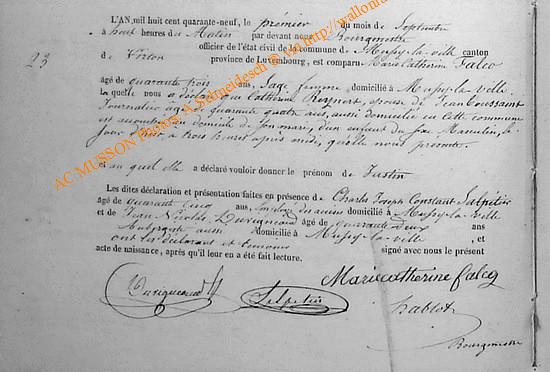 L'AN, mil huit cent quarante-neuf, le premier du mois de Septembre
à huit heures du Matin par devant nous Bourgmestre
officier de l'état civil de la commune de Mussy-la-ville canton
23
de Virton province de Luxembourg, est comparu Marie Catherine Falcq
âgé de quarante trois ans, Sage femme domicilié à Mussy-la-Ville
Laquelle nous a déclaré que Catherine épouse de Jean Toussaint
Journalier âgée de quarante quatre ans, aussi domiciliée en cette commune
est accouchée au domicile de son mari, d'un enfant du sexe Masculin, le
jour à trois heures après midi, qu'elle nous présente.
et auquel elle a déclaré vouloir donner le prénom de Justin
Les dites déclaration et présentation faites en présence de Charles Joseph Constant Salpétier
âgé de quarante cinq ans, domicilié à Mussy-la-Ville
et de Jean Nicolas Duvigneaud âgé de quarante deux ans
aussi domicilié à Mussy-la-ville, et
ont la déclarant et témoins signé avec nous le présent
acte de naissance, après qu'il leur en a été fait lecture.
Mariecatherine falcq
Duvigneaud Salpetier
hablot
Bourgmestre
AC MUSSON Photos A Schneidesch @ via http://wallonia